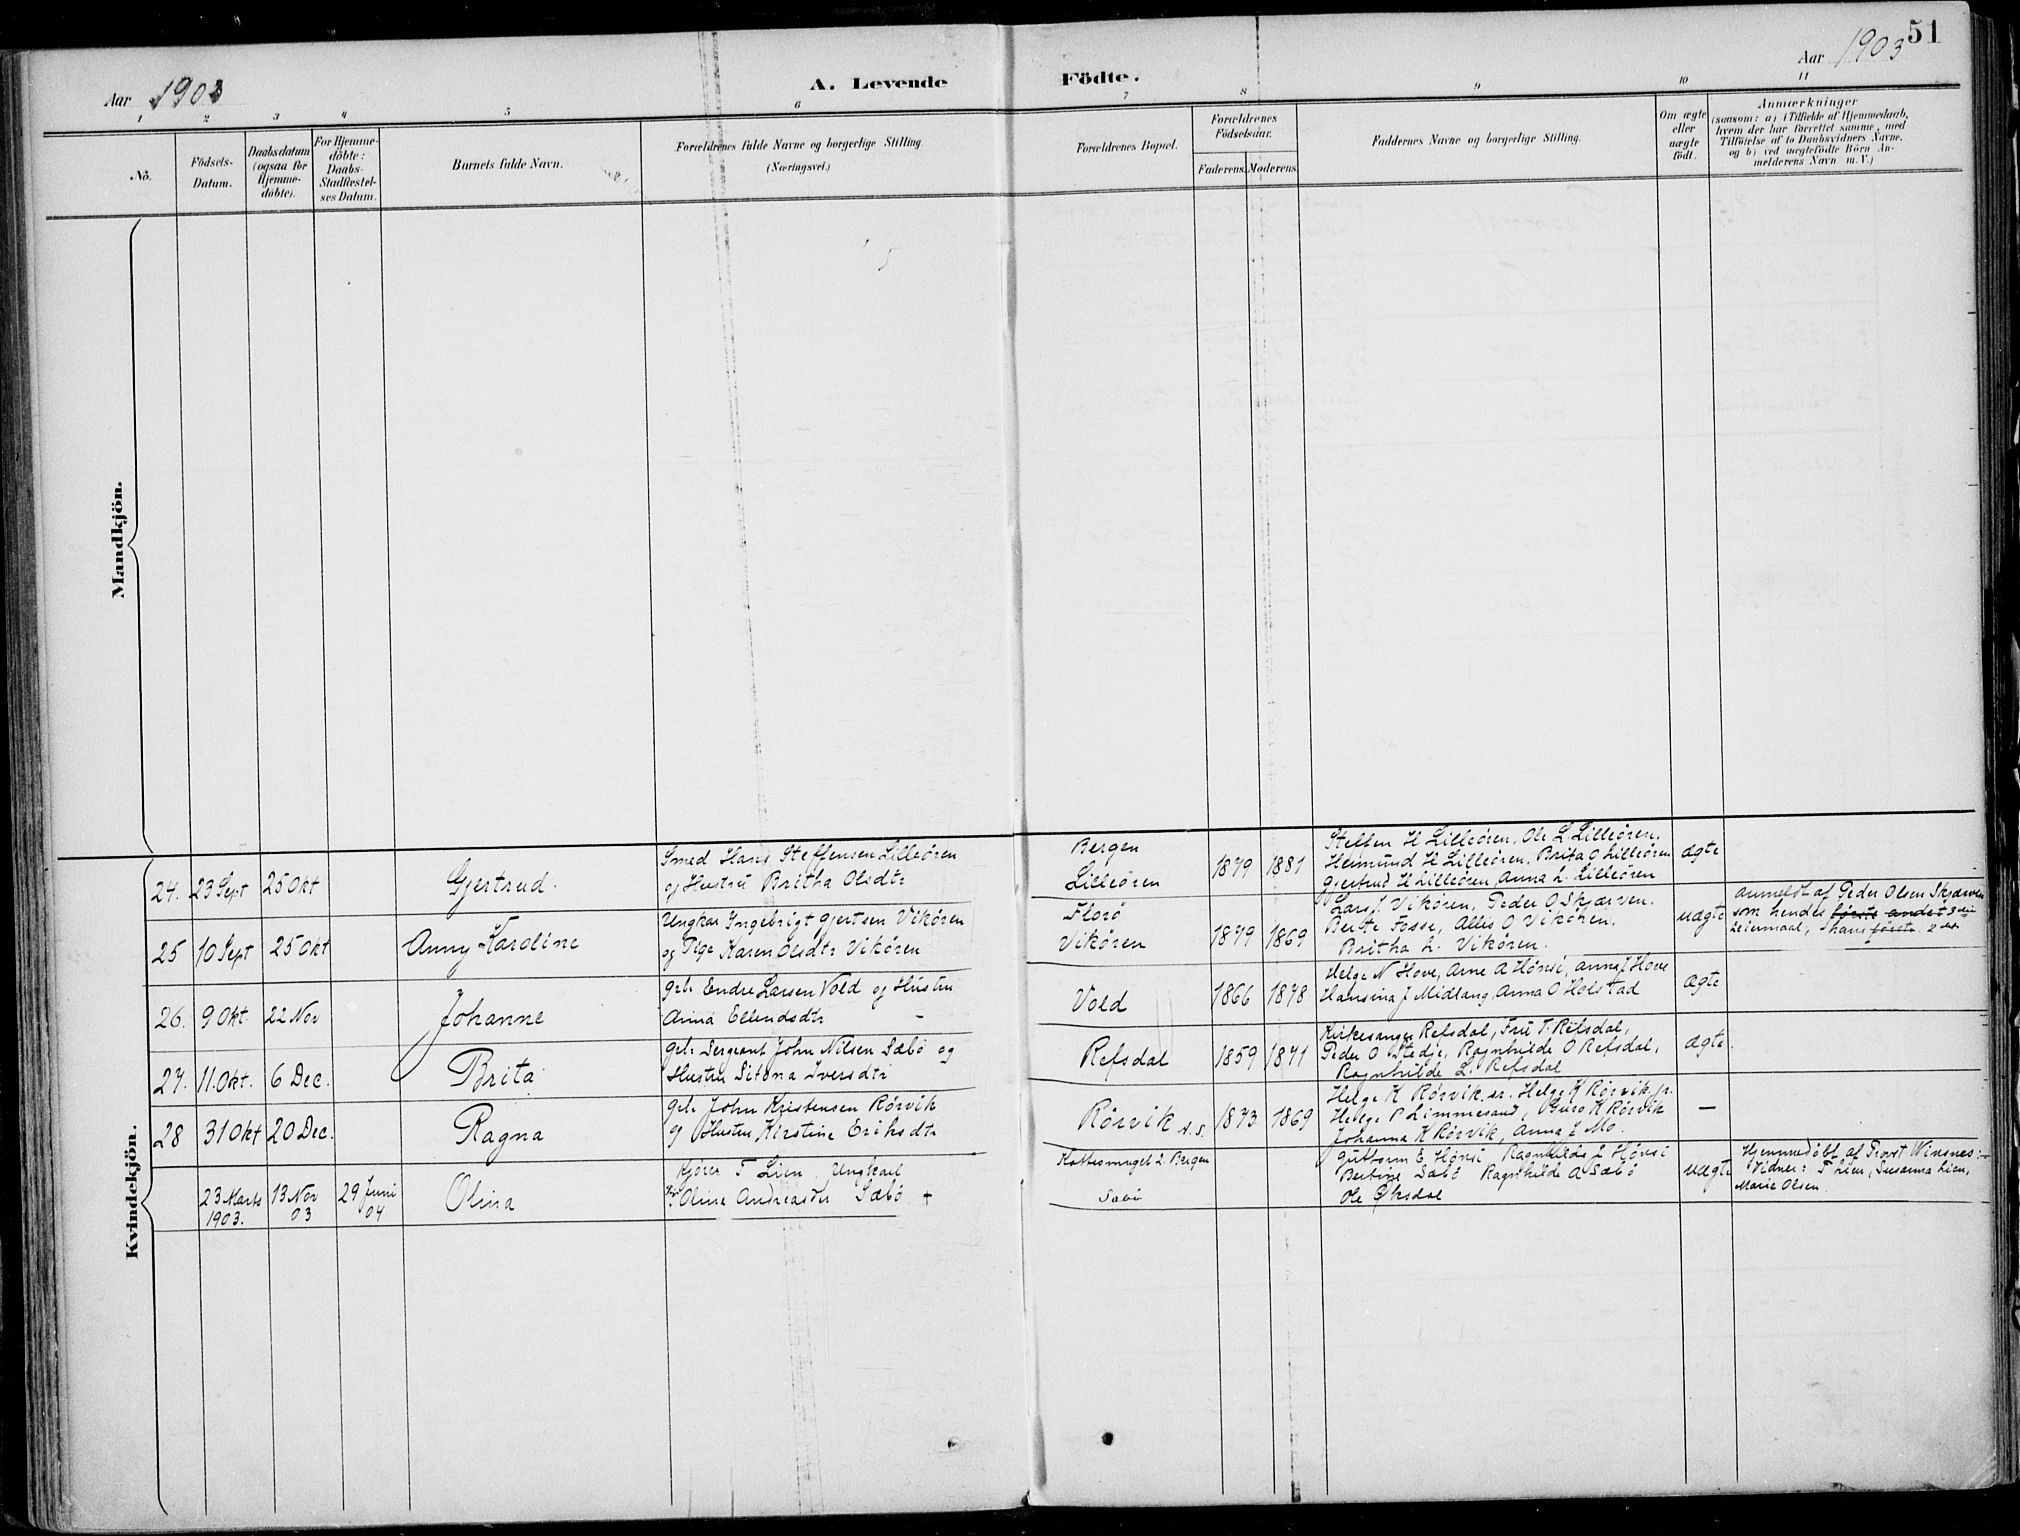 51
Aar 1903
A. Levende Födte.
Aar 1903
1 2 3 4 5 6 7 8 9 10 11
No.
Födsels-Datum.
Daabsdatum (ogsaa for Hjemme-döbte).
For Hjemme-döbte: Daabs-Stadfæstel-ses Datum.
Barnets fulde Navn.
Forældrenes fulde Navne og borgerlige Stilling.
(Næringsvei.)
Forældrenes Bopæl.
Forældrenes Födselsaar.
Faderens. Moderens.
Faddernes Navne og borgerlige Stilling.
Om ægte eller uægte födt.
Anmærkninger
(saasom: a) i Tilfælde af Hjemmedaab,
hvem der har forrettet samme, med
Tilföielse af to Daabsvidners Navne.
og b) ved uægtefödte Börn An-
melderens Navn m. V.)
Mandkjön.
Kvindekjön.
24. 23 Sept 25 Okt Gjertrud.
Smed Hans Steffensen Lilleören
og Hustru Britha Olsdtr
Bergen
Lilleören
1879 1881
Steffen H Lilleören, Ole L. Lilleören.
Heimund H Lilleören. Brita O Lilleören
Gjertrud H Lilleören Anna L. Lilleören
ægte
25 10 Sept 25 Okt Anny Karoline
Ungkar Ingebrigt Gjertsen Vikören
og Pige Karen Olsdtr Vikören
Florö
Vikören
1879 1869
Lars J. Vikören, Peder O Skjærven.
Berte Fosse, Allis O Vikören.
Britha L. Vikören.
uægte
anmeldt af Peder Olsen Skjærven
som hendes første andet 3die
Leiermaal, hans første 2det
26. 9 Okt. 22 Nov Johanne
Gbr. Endre Larsen Vold og Hustru
Anna Ellendsdtr
Vold
1866 1878
Helge N Hove, Arne A Hönsi, Anna J Hove
Hansina J Midlang, Anna O Holstad
ægte
27. 11. Okt. 6 Dec. Brita
Gbr. Sergeant John Nilsen Sæbö og
Hustru Iversdtr
Refsdal
1859 1871
Kirkesanger Refsdal, Fru T. Refsdal,
Peder O Stedje, Ragnhilde O Refsdal,
Ragnhilde L. Refsdal
ægte.
28 31 Okt 20 Dec. Ragna
Gbr. John Kristensen Rörvik
og Hustru Kirstine Eriksdtr
Rörvik
1873 1869
Helge K Rörvik sr. Helge K Rörvik jr.
Helge P Limmesand, Guro K Rörvik
Johanna K Rörvik, Anna I Mo.
—
23 Marts 1903. 13 Nov 03 29 Juni 04 Olina
Kjörer T Lien Ungkarl
Pige Oline Andreasdtr Sæbö +
Bergen
Sæbö
Guttorm E Hönsi Ragnhilde L Hönsi
Bertine Sæbö Ragnhilde A Sæbö
Ole Öksdal
uægte
Hjemmedöbt af Provst Winsnes:—
Vidner: T Lien, Susanna Lien,
Marie Olsen.